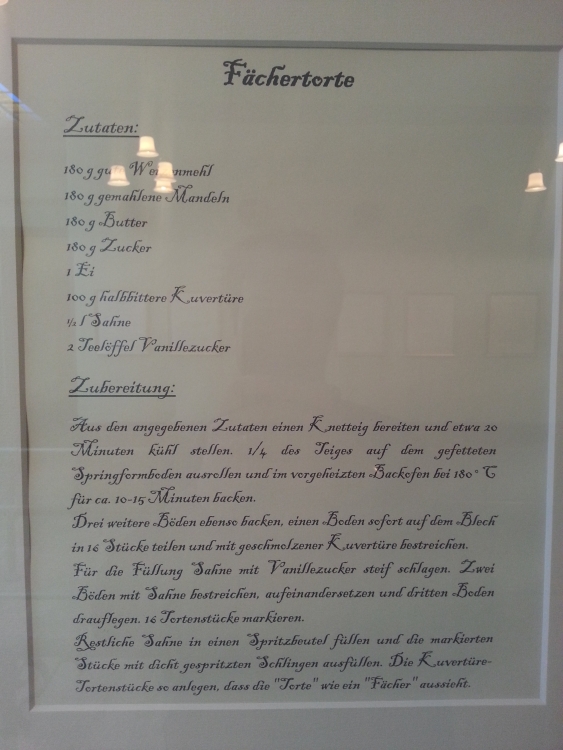 Fächertorte
Zutaten:
180 g gutes Weizenmehl
180 g gemahlene Mandeln
180 g Butter
180 g Zucker
1 Ei
100 g halbbittere Kuvertüre
½ l Sahne
2 Teelöffel Vanillezucker
Zubereitung:
Aus den angegebenen Zutaten einen Knetteig bereiten und etwa 20
Minuten kühl stellen. 1/4 des Teiges auf dem gefetteten
Springformboden ausrollen und im vorgeheizten Backofen bei 180° C
für ca. 10-15 Minuten backen.
Drei weitere Böden ebenso backen, einen Boden sofort auf dem Blech
in 16 Stücke teilen und mit geschmolzener Kuvertüre bestreichen.
Für die Füllung Sahne mit Vanillezucker steif schlagen. Zwei
Böden mit Sahne bestreichen, aufeinandersetzen und dritten Boden
drauflegen. 16 Tortenstücke markieren.
Restliche Sahne in einen Spritzbeutel füllen und die markierten
Stücke mit dicht gespritzten Schlingen ausfüllen. Die Kuvertüre-
Tortenstücke so anlegen, dass die "Torte" wie ein "Fächer" aussieht.